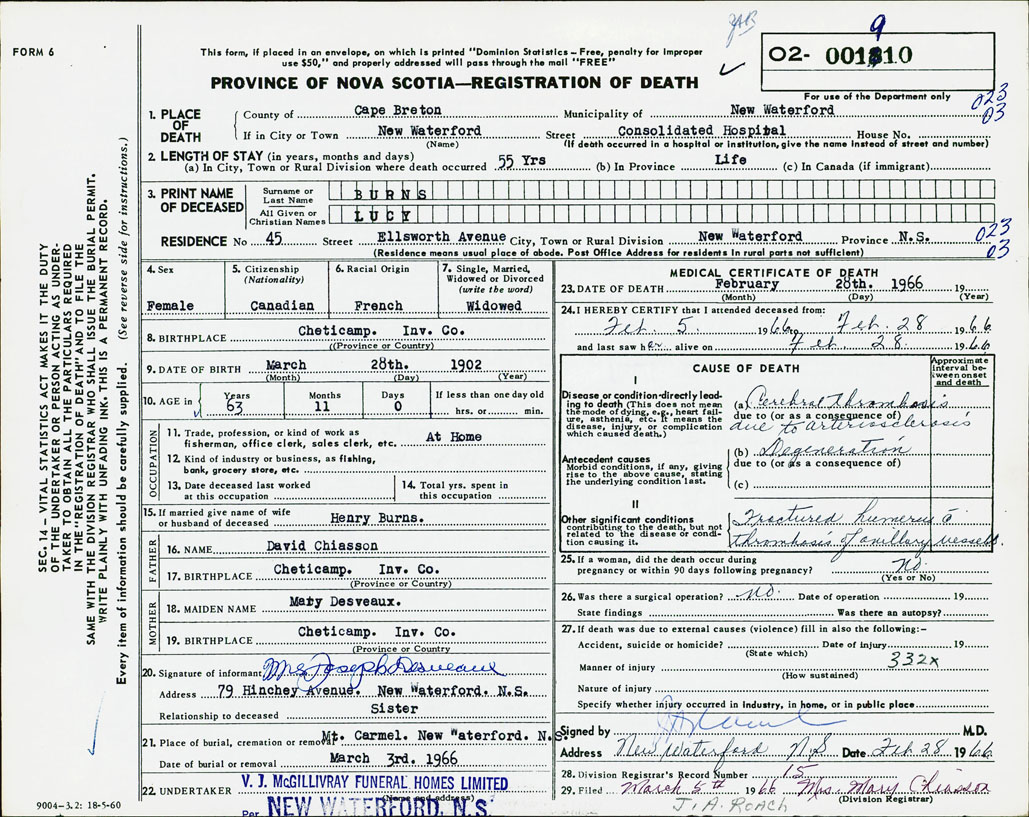 FORM 6
This form, if placed in an envelope, on which is printed "Dominion Statistics – Free, penalty for improper
use $50," and properly addressed will pass through the mail "FREE"
PROVINCE OF NOVA SCOTIA—REGISTRATION OF DEATH
9
O2- 001810
For use of the Department only
023
03
1. PLACE OF DEATH
County of Cape Breton Municipality of New Waterford
If in City or Town New Waterford Street Consolidated Hospital House No.
(Name) (If death occurred in a hospital or institution, give the name instead of street and number)
2. LENGTH OF STAY (in years, months and days)
(a) In City, Town or Rural Division where death occurred 55 Yrs (b) In Province Life (c) In Canada (if immigrant)
3. PRINT NAME OF DECEASED
Surname or Last Name BURNS
All Given or Christian Names LUCY
RESIDENCE No 45 Street Ellsworth Avenue City, Town or Rural Division New Waterford Province N.S.
023
03
(Residence means usual place of abode. Post Office Address for residents in rural parts not sufficient)
4. Sex
Female
5. Citizenship
(Nationality)
Canadian
6. Racial Origin
French
7. Single, Married,
Widowed or Divorced
(write the word)
Widowed
8. BIRTHPLACE Cheticamp. Inv. Co.
((Province or Country)
9. DATE OF BIRTH March 28th. 1902
(Month) (Day) (Year)
10. AGE in Years 63 Months 11 Days 0 If less than one day old hrs. or min.
OCCUPATION
11. Trade, profession, or kind of work as
fisherman, office clerk, sales clerk, etc. At Home
12. Kind of industry or business, as fishing,
bank, grocery store, etc.
13. Date deceased last worked
at this occupation
14. Total yrs. spent in
this occupation
15. If married give name of wife
or husband of deceased Henry Burns.
FATHER
16. NAME David Chiasson
17. BIRTHPLACE Cheticamp. Inv. Co.
(Province or Country)
MOTHER
18. MAIDEN NAME Mary Desveaux.
19. BIRTHPLACE Cheticamp. Inv. Co.
(Province or Country)
20. Signature of informant Mrs Joseph Desveaux
Address 79 Hinchey Avenue. New Waterford. N.S.
Relationship to deceased Sister
21. Place of burial, cremation or removal Mt. Carmel. New Waterford. N.S.
Date of burial or removal March 3rd. 1966
22. UNDERTAKER V. J. McGILLIVRAY FUNERAL HOMES LIMITED
(Name and address)
Per NEW WATERFORD, N.S.
9004-3.2: 18-5-60
MEDICAL CERTIFICATE OF DEATH
23. DATE OF DEATH February 28th. 1966 19
(Month) (Day) (Year)
24. I HEREBY CERTIFY that I attended deceased from:
Feb. 5 1966 Feb. 28 1966
and last saw her alive on Feb. 28 1966
CAUSE OF DEATH
Approximate
interval be-
tween onset
and death
I
Disease or condition directly lead-
ing to death (This does not mean
the mode of dying, e.g., heart fail-
ure, asthenia, etc. It means the
disease, injury, or complication
which caused death.)
(a) Cerebral Thrombosis
due to (or as a consequence of)
due to arteriosclerosis
Antecedent causes
Morbid conditions, if any, giving
rise to the above cause, stating
the underlying condition last.
(b) Degeneration
due to (or as a consequence of)
(c)
II
Other significant conditions
contributing to the death, but not
related to the disease or condi-
tion causing it.
Fractured humerus c̄
thrombosis of axillary vessels.
25. If a woman, did the death occur during
pregnancy or within 90 days following pregnancy? no.
(Yes or No)
26. Was there a surgical operation? no. Date of operation 19
State findings Was there an autopsy?
27. If death was due to external causes (violence) fill in also the following:–
Accident, suicide or homicide? Date of injury 19
(State which)
332x
Manner of injury
(How sustained)
Nature of injury
Specify whether injury occurred in industry, in home, or in public place
Signed by M.D.
Address New Waterford N.S Date Feb 28 1966
28. Division Registrar's Record Number 15
29. Filed March 5th 1966 Mrs. Mary Chiasson
(Division Registrar)
J. A. ROACH
SEC. 14 – VITAL STATISTICS ACT MAKES IT THE DUTY
OF THE UNDERTAKER OR PERSON ACTING AS UNDER-
TAKER TO OBTAIN ALL THE PARTICULARS REQUIRED
IN THE "REGISTRATION OF DEATH" AND TO FILE THE
SAME WITH THE DIVISION REGISTRAR WHO SHALL ISSUE THE BURIAL PERMIT.
WRITE PLAINLY WITH UNFADING INK. THIS IS A PERMANENT RECORD.
Every item of information should be carefully supplied. (See reverse side for instructions.)